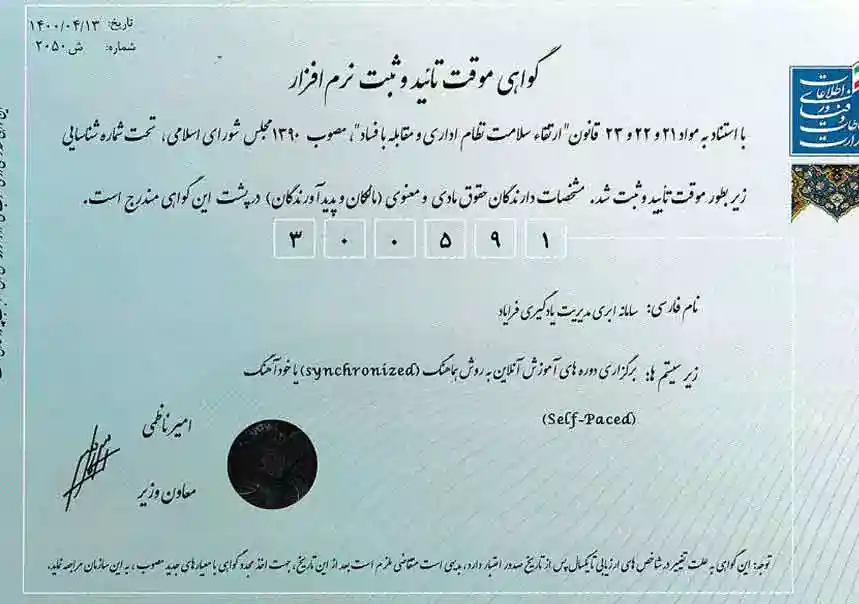 تاریخ: ۱۴۰۰/۰۴/۱۳
شماره: ش۲۰۵۰
گواهی موقت تائید و ثبت نرم افزار
با استناد به مواد ۲۱ و ۲۲ و ۲۳ قانون "ارتقاء سلامت نظام اداری و مقابله با فساد"، مصوب ۱۳۹۰ مجلس شورای اسلامی، تحت شماره شناسایی
زیر بطور موقت تأیید و ثبت شد. مشخصات دارندگان حقوق مادی و معنوی (مالکان و پدیدآورندگان) در پشت این گواهی مندرج است.
۳ ۰ ۰ ۵ ۹ ۱
نام فارسی: سامانه ابری مدیریت یادگیری فرایاد
زیر سیستم ها: برگزاری دوره های آموزش آنلاین به روش هماهنگ (synchronized) یا خودآهنگ
(Self-Paced)
امیر ناظمی
معاون وزیر
توجه: این گواهی به علت تغییر در شاخص های ارزیابی تا یکسال پس از تاریخ صدور اعتبار دارد، بدیهی است متقاضی ملزم است بعد از این تاریخ، جهت اخذ مجدد گواهی با معیارهای جدید مصوب، به این سازمان مراجعه نماید.